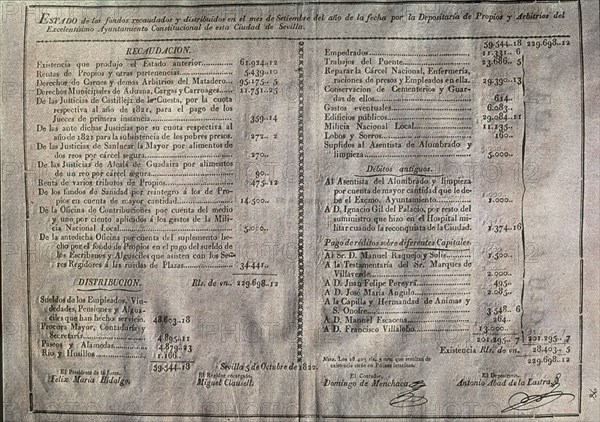 ESTADO de los fondos recaudados y distribuidos en el mes de Setiembre del año de la fecha por la Depositaría de Propios y Arbitrios del
Excelentísimo Ayuntamiento Constitucional de esta Ciudad de Sevilla.
RECAUDACION.
Existencia que produjo el Estado anterior. 61.924..12
Rentas de Propios y otras pertenencias. 5.439..10
Derechos de Carnes y demas Arbitrios del Matadero. 95.175.. 5
Derechos Municipales de Aduana, Cargas y Carruages. 11.751..25
De las Justicias de Castilleja de la Cuesta, por la cuota
respectiva al año de 1821, para el pago de los
Jueces de primera instancia. 359..14
De las ante dichas Justicias por su cuota respectiva al
año de 1822 para la subsistencia de los pobres presos. 272.. 2
De las Justicias de Sanlucar la Mayor por alimentos de
dos reos por cárcel segura. 270..
De las Justicias de Alcalá de Guadaira por alimentos
de un reo por cárcel segura. 90..
Renta de varios tributos de Propios. 475..12
De los fondos de Sanidad por reintegro á los de Pro-
pios en cuenta de mayor cantidad. 14.500..
De la Oficina de Contribuciones por cuenta del medio
y uno por ciento aplicados á los gastos de la Mili-
cia Nacional Local. 5.000..
De la antedicha Oficina por cuenta del suplemento he-
cho por el fondo de Propios en el pago del sueldo de
los Escribanos y Alguaciles que asisten con los Seño-
res Regidores á las ruedas de Plazas. 34.441..
Rls. de vn.. 229.698..12
DISTRIBUCION.
Sueldos de los Empleados, Viu-
dedades, Pensiones y Algua-
ciles que han hecho servicio. 48.603..18
Procura Mayor, Contaduría y
Secretaría. 4.895..11
Paseos y Alamedas. 4.879..23
Rio y Husillos. 1.166..
59.544..18
Sevilla 5 de Octubre de 1822.
El Presidente de la Junta.
Felix María Hidalgo.
El Regidor encargado,
Miguel Clausell.
59.544..18 229.698..12
Empedrados. 11.331.. 6
Trabajos del Puente. 23.686.. 5
Reparar la Cárcel Nacional, Enfermería,
raciones de presos y Empleados en ella. 29.390..13
Conservacion de Cementerios y Guar-
das de ellos. 614..
Gastos eventuales. 6.083..
Edificios públicos. 29.084..11
Milicia Nacional Local. 11.135..
Lobos y Sorros. 160..
Suplidos al Asentista de Alumbrado y
limpieza. 5.000..
Débitos antiguos.
Al Asentista del Alumbrado y limpieza
por cuenta de mayor cantidad que le de-
be el Excmo. Ayuntamiento. 1.000..
A D. Ignacio Gil del Palacio, por resto del
suministro que hizo en el Hospital mi-
litar cuando la reconquista de la Ciudad. 1.374..16
Pago de réditos sobre diferentes Capitales.
Al Sr. D. Manuel Raquejo y Solís. 1.500..
A la Testamentaría del Sr. Marques de
Villaverde. 2.000..
A D. Juan Felipe Pereyra. 495..
A D. José María Angulo. 2.085..
A la Capilla y Hermandad de Animas y
S. Onofre. 3.548.. 6
A D. Manuel Escacena. 264..
A D. Francisco Villalobo. 13.000..
201.295.. 7 201.295.. 7
Existencia Rls. de vn. 28.403.. 5
229.698..12
Nota. Los 28.403 rls. 5 mrs. que resultan de
existencia
El Contador.
Domingo de Menchaca.
El Depositario.
Antonio Abad de la Lastra.